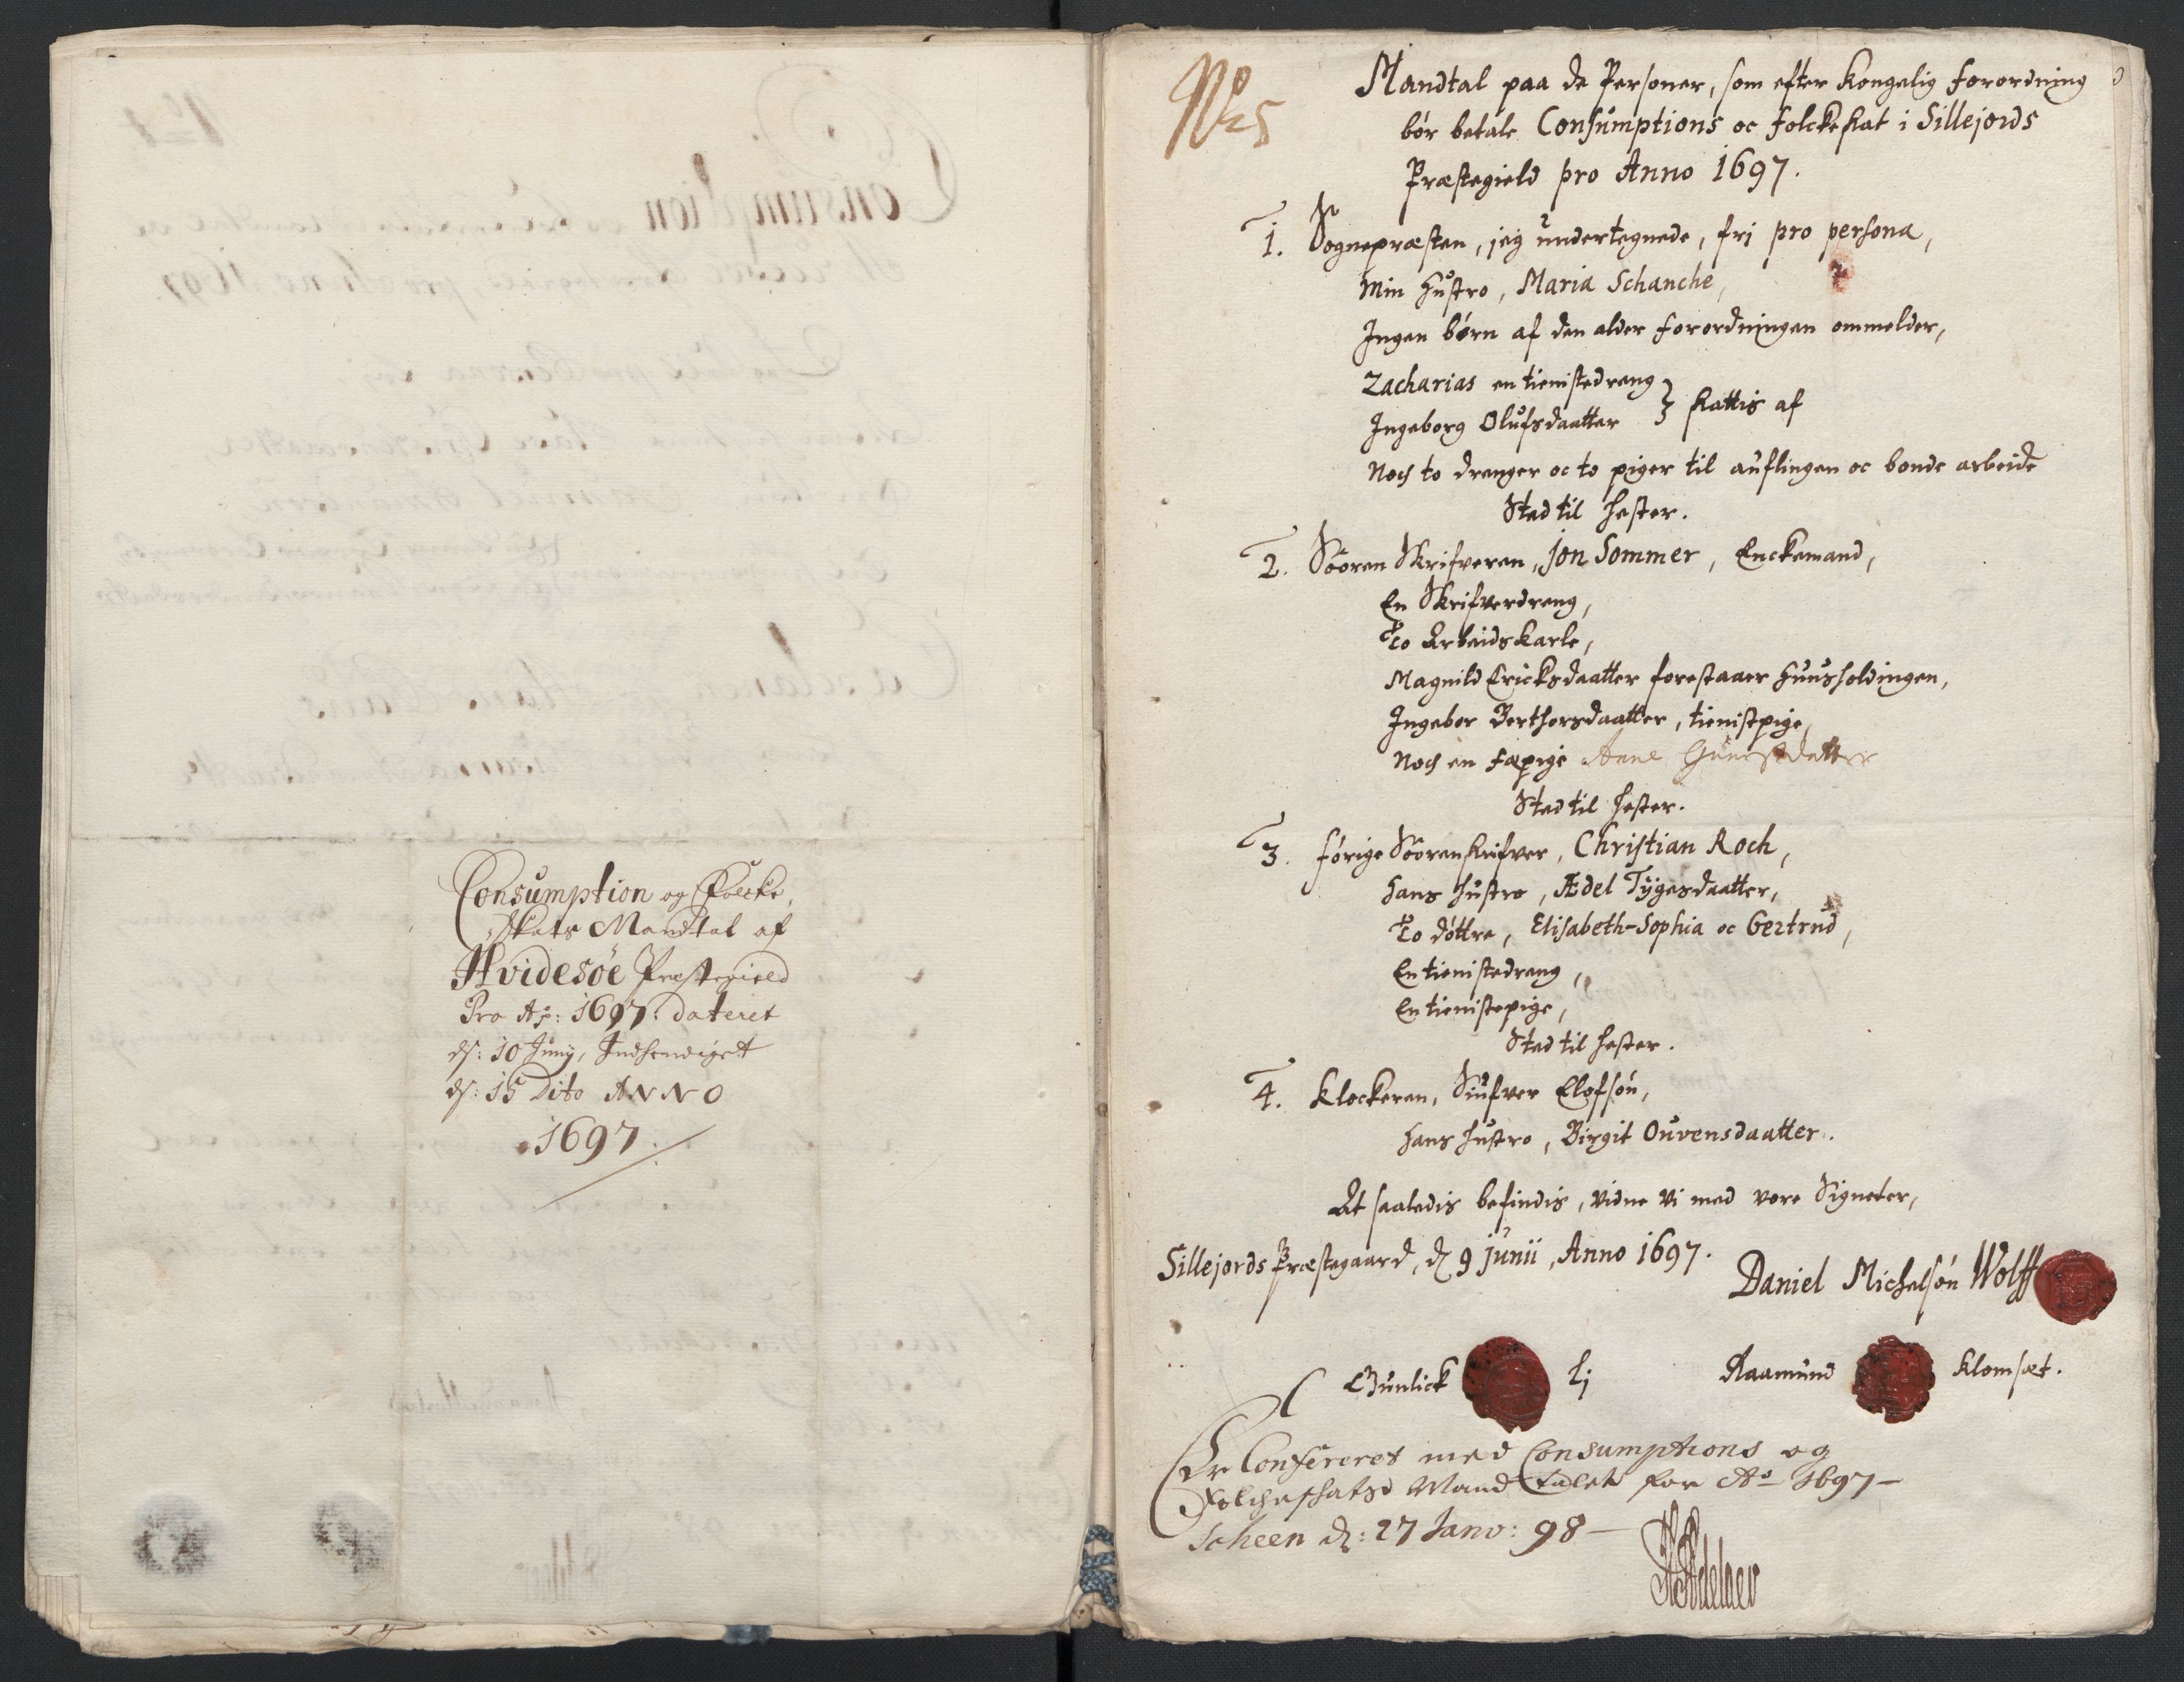 Consumption og Folcke,
Skats Mandtal af
Hvidesøe Præstegield
Pro Ao: 1697. Dateret
ds: 10 Junÿ, Indhendiget
ds: 15 Dito ANNO
1697.
No 5
Mandtal paa de Personer, som efter Kongelig Forordning
bór betale Consumptions oc Folckeskat i Sillejords
Præstegield pro Anno 1697.
1. Sognepræsten, jeg undertegnede, frj pro persona,
Min Hustro, Maria Schanche,
Ingen bórn af den alder Forordningen ommelder,
Zacharias en tienistedreng
Ingeborg Olufsdaatter } skattis af
Noch to drenger oc to piger til auflingen oc bonde arbeide
Sted til Hester.
2. Sóoren Skrifveren, Jon Sommer, Enckemand,
En Skrifverdreng,
To Arbeidskarle,
Magnild Ericksdaatter forestaaer Huusholdingen,
Ingebor Berthorsdaatter, tienistpige,
Noch en Fæpige Anne
Sted til Hester.
3. Fórige Sóorenskrifver, Christian Roch,
Hans Hustro, Ædel Tÿgesdaatter,
To dóttre, Elisabeth-Sophia oc Gertrud,
En tienistedreng,
En tienistepige,
Sted til Hester.
4. Klockeren, Siufver Elofsón,
Hans Hustro, Birgit Ouvensdaatter.
At saaledis befindis, vidne vi med vore Signeter,
Sillejords Præstegaard, d 9 Junii, Anno 1697.
Daniel Michelsón Wolff
Gunlick Lj
Aamund Klomset.
Er Confereret med Consumptions og
Folcheschatz Mandtalet for Ao 1697
Scheen d: 27 Janv: 98
HAdelaer